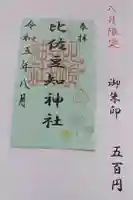 八月限定
御朱印
五百円
奉拝
比佐豆知神社
令和五年八月